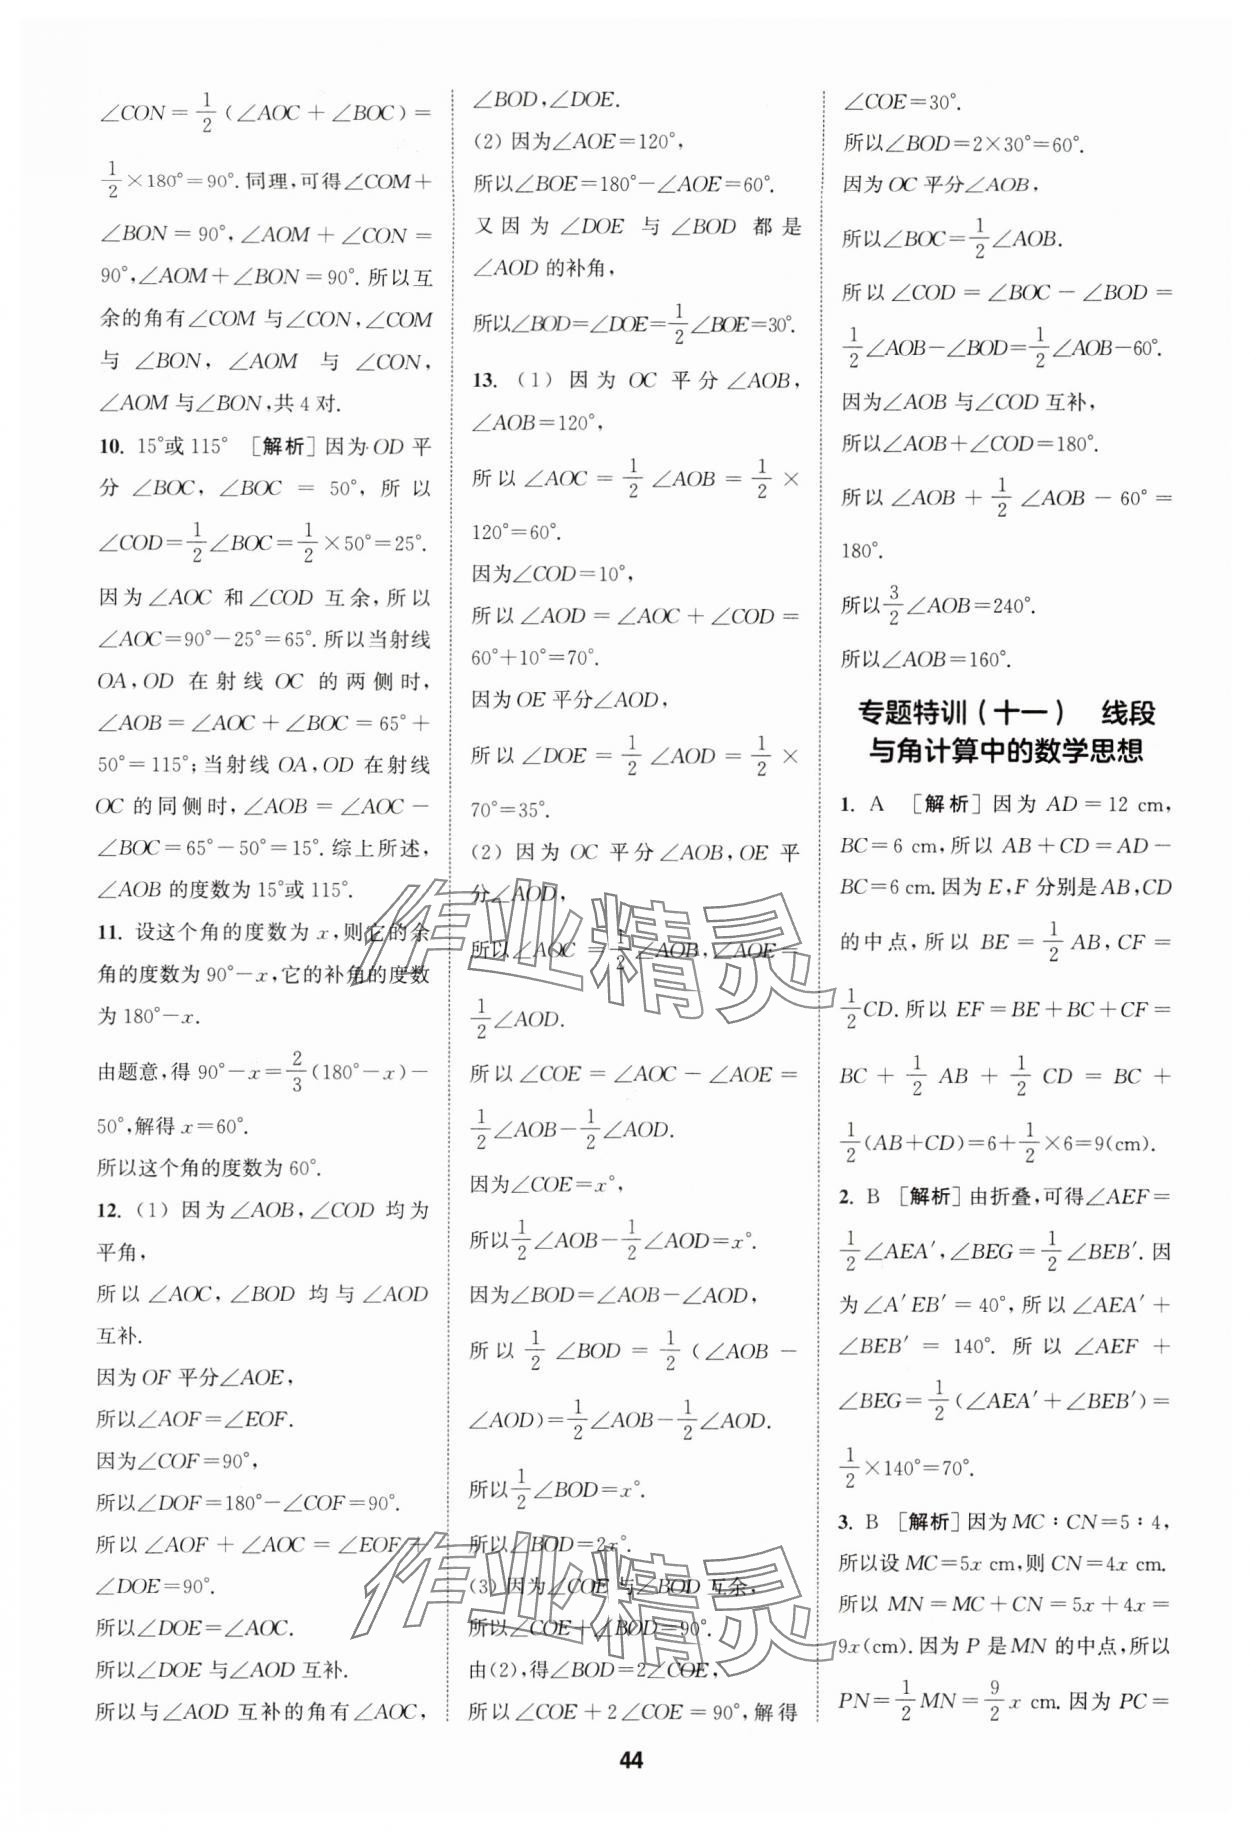 ∠CON=1/2(∠AOC+∠BOC)=
1/2×180°=90°.同理,可得∠COM+
∠BON=90°,∠AOM+∠CON=
90°,∠AOM+∠BON=90°.所以互
余的角有∠COM与∠CON,∠COM
与∠BON,∠AOM与∠CON,
∠AOM与∠BON,共4对.
10. 15°或115° [解析]因为OD平
分∠BOC,∠BOC=50°,所以
∠COD=1/2∠BOC=1/2×50°=25°.
因为∠AOC和∠COD互余,所以
∠AOC=90°-25°=65°.所以当射线
OA,OD在射线OC的两侧时,
∠AOB=∠AOC+∠BOC=65°+
50°=115°;当射线OA,OD在射线
OC的同侧时,∠AOB=∠AOC-
∠BOC=65°-50°=15°.综上所述,
∠AOB的度数为15°或115°.
11. 设这个角的度数为x,则它的余
角的度数为90°-x,它的补角的度数
为180°-x.
由题意,得90°-x=2/3(180°-x)-
50°,解得x=60°.
所以这个角的度数为60°.
12. (1) 因为∠AOB,∠COD均为
平角,
所以∠AOC,∠BOD均与∠AOD
互补.
因为OF平分∠AOE,
所以∠AOF=∠EOF.
因为∠COF=90°,
所以∠DOF=180°-∠COF=90°.
所以∠AOF+∠AOC=∠EOF+
∠DOE=90°.
所以∠DOE=∠AOC.
所以∠DOE与∠AOD互补.
所以与∠AOD互补的角有∠AOC,
∠BOD,∠DOE.
(2) 因为∠AOE=120°,
所以∠BOE=180°-∠AOE=60°.
又因为∠DOE与∠BOD都是
∠AOD的补角,
所以∠BOD=∠DOE=1/2∠BOE=30°.
13. (1) 因为OC平分∠AOB,
∠AOB=120°,
所以∠AOC=1/2∠AOB=1/2×
120°=60°.
因为∠COD=10°,
所以∠AOD=∠AOC+∠COD=
60°+10°=70°.
因为OE平分∠AOD,
所以∠DOE=1/2∠AOD=1/2×
70°=35°.
(2) 因为OC平分∠AOB,OE平
分∠AOD,
所以∠AOC=1/2∠AOB,∠AOE=
1/2∠AOD.
所以∠COE=∠AOC-∠AOE=
1/2∠AOB-1/2∠AOD.
因为∠COE=x°,
所以1/2∠AOB-1/2∠AOD=x°.
因为∠BOD=∠AOB-∠AOD,
所以1/2∠BOD=1/2(∠AOB-
∠AOD)=1/2∠AOB-1/2∠AOD.
所以1/2∠BOD=x°.
所以∠BOD=2x°.
(3) 因为∠COE与∠BOD互余,
所以∠COE+∠BOD=90°.
由(2),得∠BOD=2∠COE,
所以∠COE+2∠COE=90°,解得
∠COE=30°.
所以∠BOD=2×30°=60°.
因为OC平分∠AOB,
所以∠BOC=1/2∠AOB.
所以∠COD=∠BOC-∠BOD=
1/2∠AOB-∠BOD=1/2∠AOB-60°.
因为∠AOB与∠COD互补,
所以∠AOB+∠COD=180°.
所以∠AOB+1/2∠AOB-60°=
180°.
所以3/2∠AOB=240°.
所以∠AOB=160°.
专题特训(十一) 线段
与角计算中的数学思想
1. A [解析]因为AD=12 cm,
BC=6 cm,所以AB+CD=AD-
BC=6 cm.因为E,F分别是AB,CD
的中点,所以BE=1/2AB,CF=
1/2CD.所以EF=BE+BC+CF=
BC+1/2AB+1/2CD=BC+
1/2(AB+CD)=6+1/2×6=9(cm).
2. B [解析]由折叠,可得∠AEF=
1/2∠AEA′,∠BEG=1/2∠BEB′.因
为∠A′EB′=40°,所以∠AEA′+
∠BEB′=140°.所以∠AEF+
∠BEG=1/2(∠AEA′+∠BEB′)=
1/2×140°=70°.
3. B [解析]因为MC:CN=5:4,
所以设MC=5x cm,则CN=4x cm.
所以MN=MC+CN=5x+4x=
9x(cm).因为P是MN的中点,所以
PN=1/2MN=9/2x cm.因为PC=
44
作业精灵
作业精灵